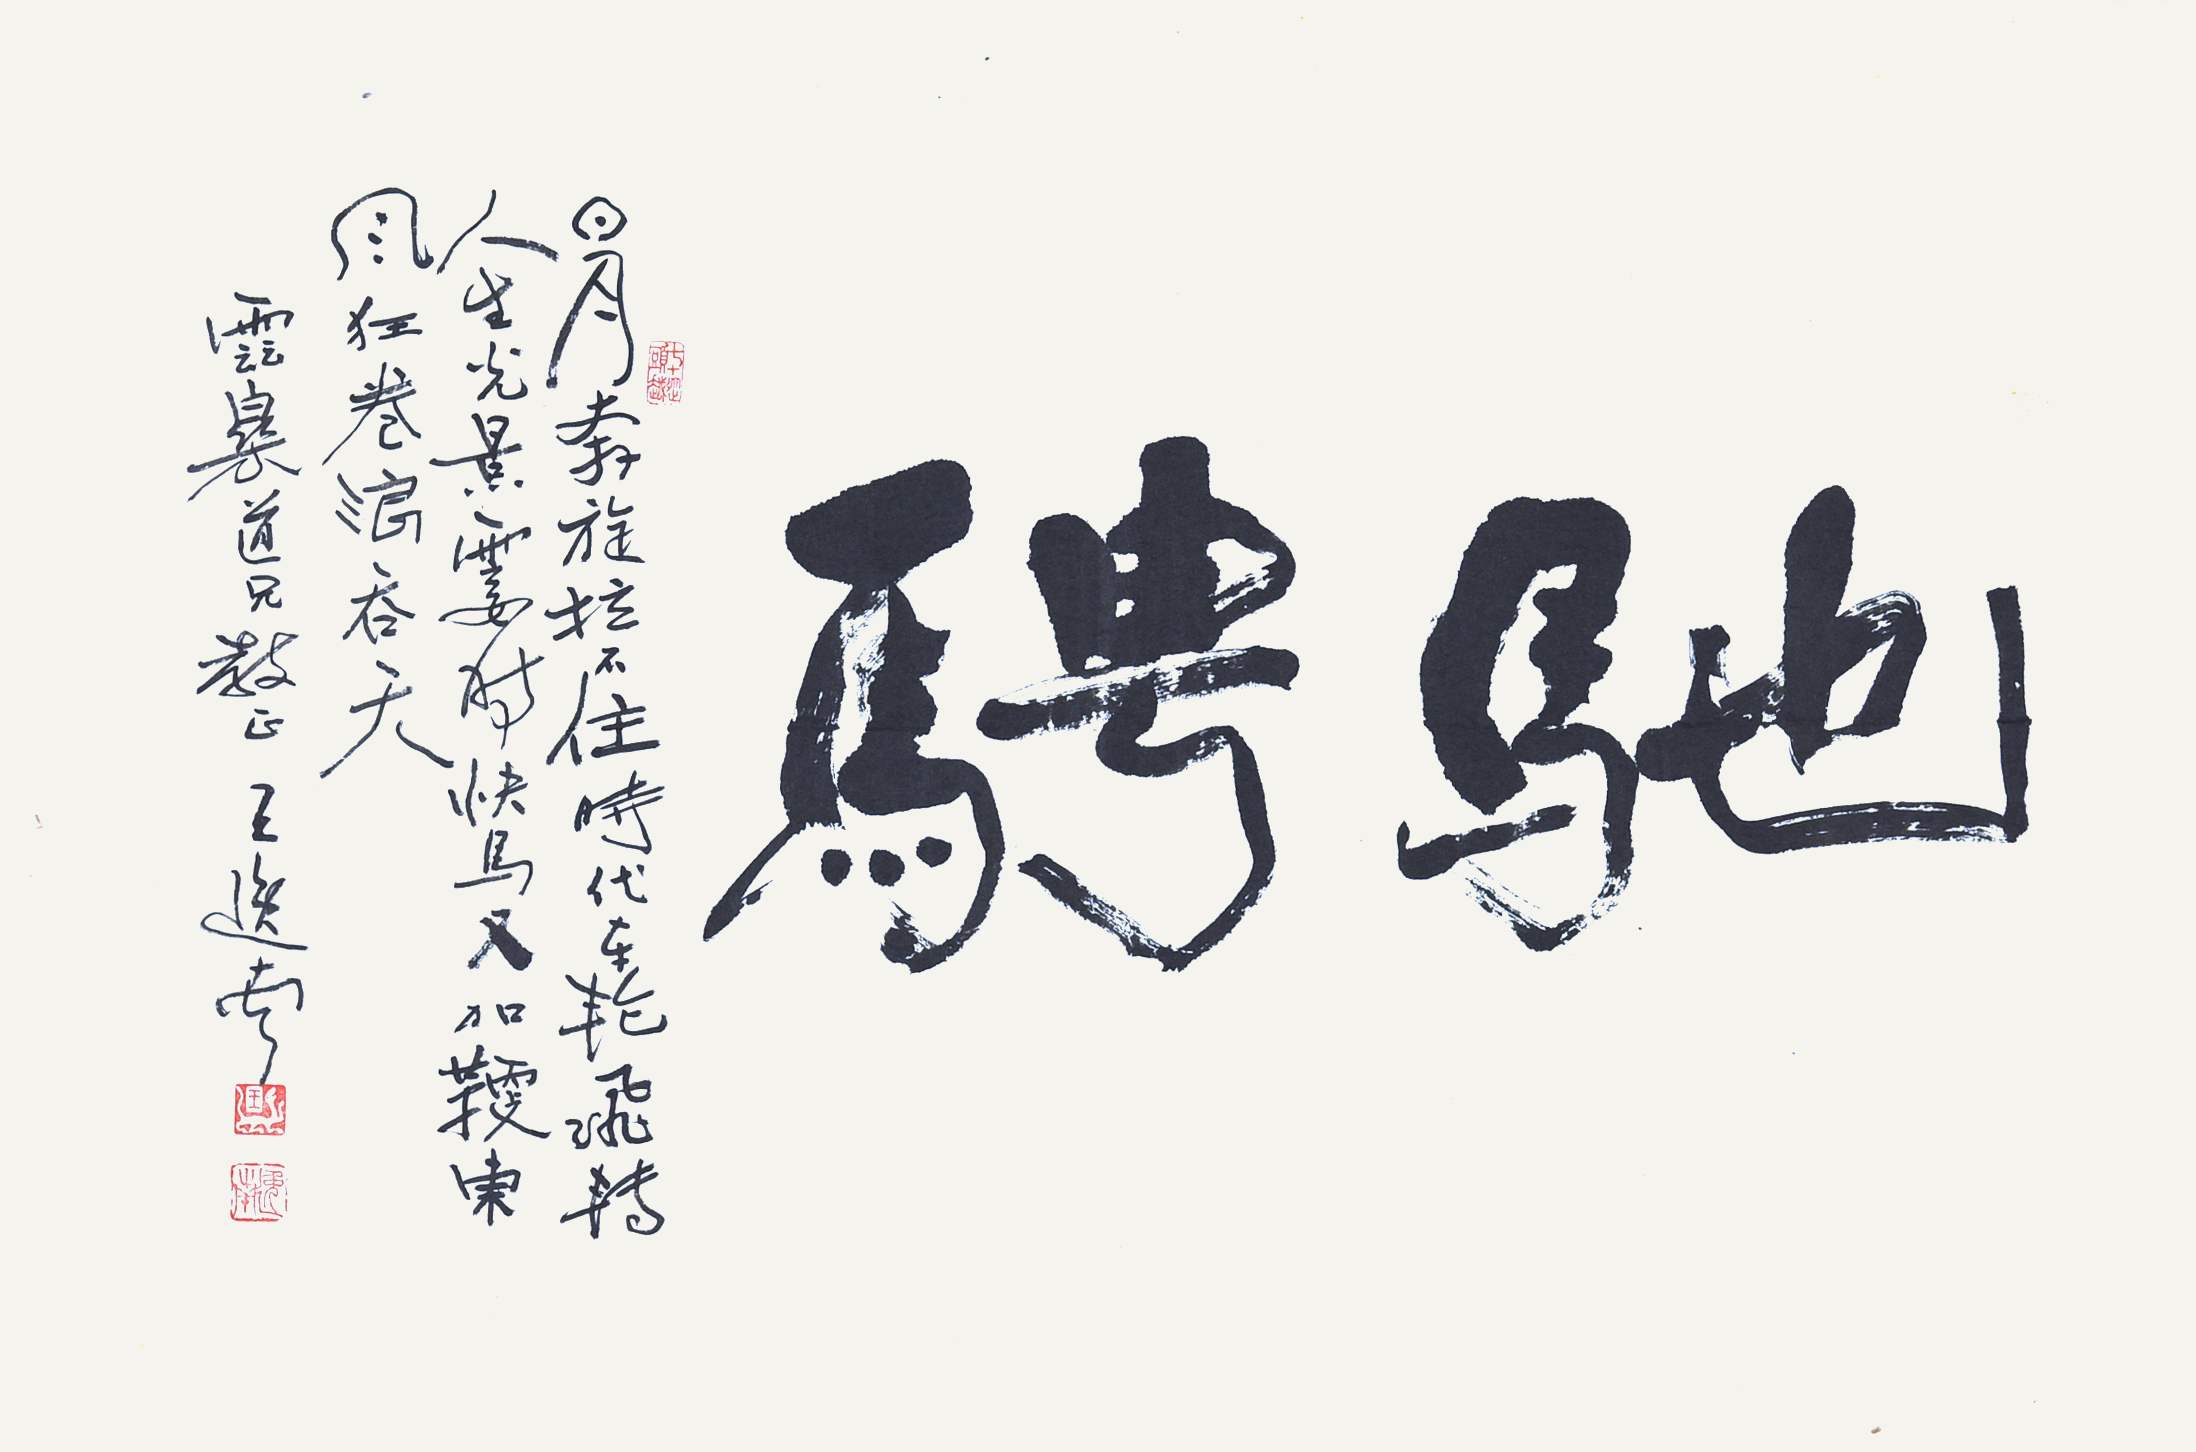 馳騁
日月奔旋拉不住時代車輪飛轉
人生光景霎時快馬又加鞭東
風狂卷浪吞天
雲道兄教正 王